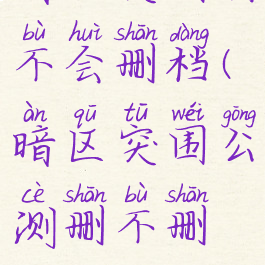 bù huì shān dàng
不会删档(
àn qū tū wéi gōng
暗区突围公
cè shān bù shān
测删不删